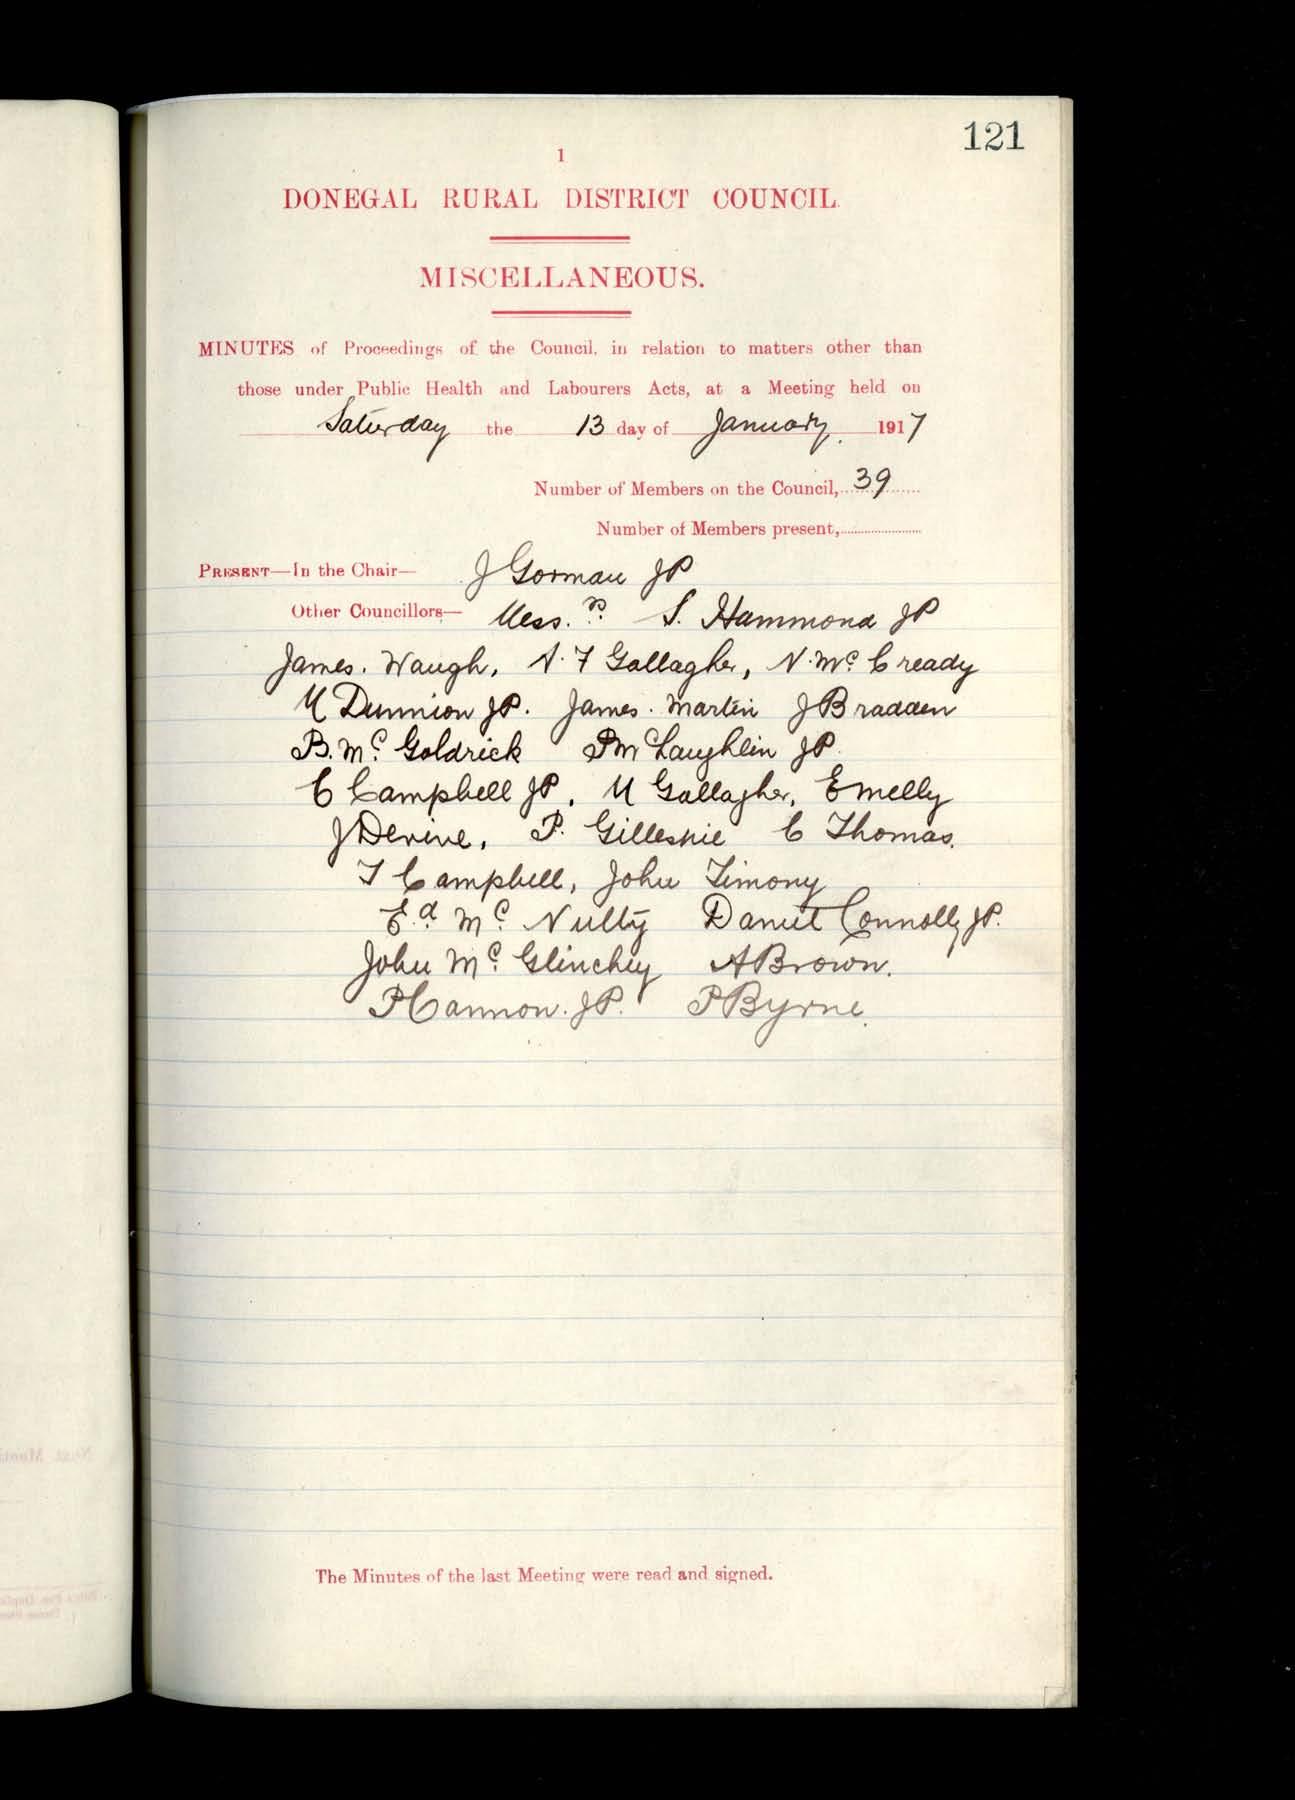 121
1
DONEGAL RURAL DISTRICT COUNCIL.
MISCELLANEOUS.
MINUTES of Proceedings of the Council, in relation to matters other than
those under Public Health and Labourers Acts, at a Meeting held on
Saturday the 13 day of January 1917
Number of Members on the Council, 39
Number of Members present,
PRESENT—In the Chair— J Gorman JP
Other Councillors— Mess.rs S. Hammond JP
James. Waugh, A. F Gallagher, N. Mc Cready
M Dunnion JP. James. Martin J Bradden
B. Mc Goldrick P McLaughlin JP.
C Campbell JP, M Gallagher, E Melly
J Devine, P. Gillespie C Thomas.
T Campbell, John Timony
Ed. Mc Nulty Daniel Connolly JP.
John Mc Glinchey A Brown.
P Cannon. JP. P Byrne.
The Minutes of the last Meeting were read and signed.